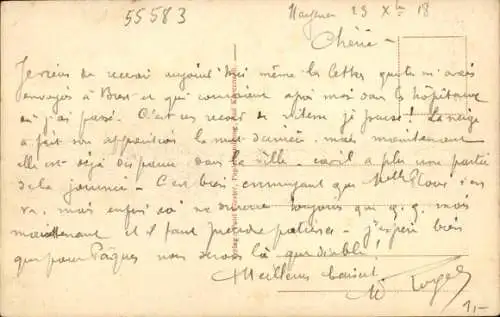 55583
Hayange 23 Xbre 18
Chérie -
Je viens de recevoir aujourd'hui même les lettres que tu m'avais
envoyés à Brest et qui couraient après moi dans les hôpitaux
où j'ai passé. C'est un record de vitesse je pense! La neige
a fait son apparition la nuit dernière mais maintenant
elle est déjà disparue dans la ville. car il a plu une partie
de la journée - C'est bien ennuyant que Melle s'en
va, mais enfin ça ne durera toujours que q.q. mois
maintenant et il faut prendre patience - j'espère bien
que pour Pâques nous serons là que diable!
Meilleurs baisers.
1,-